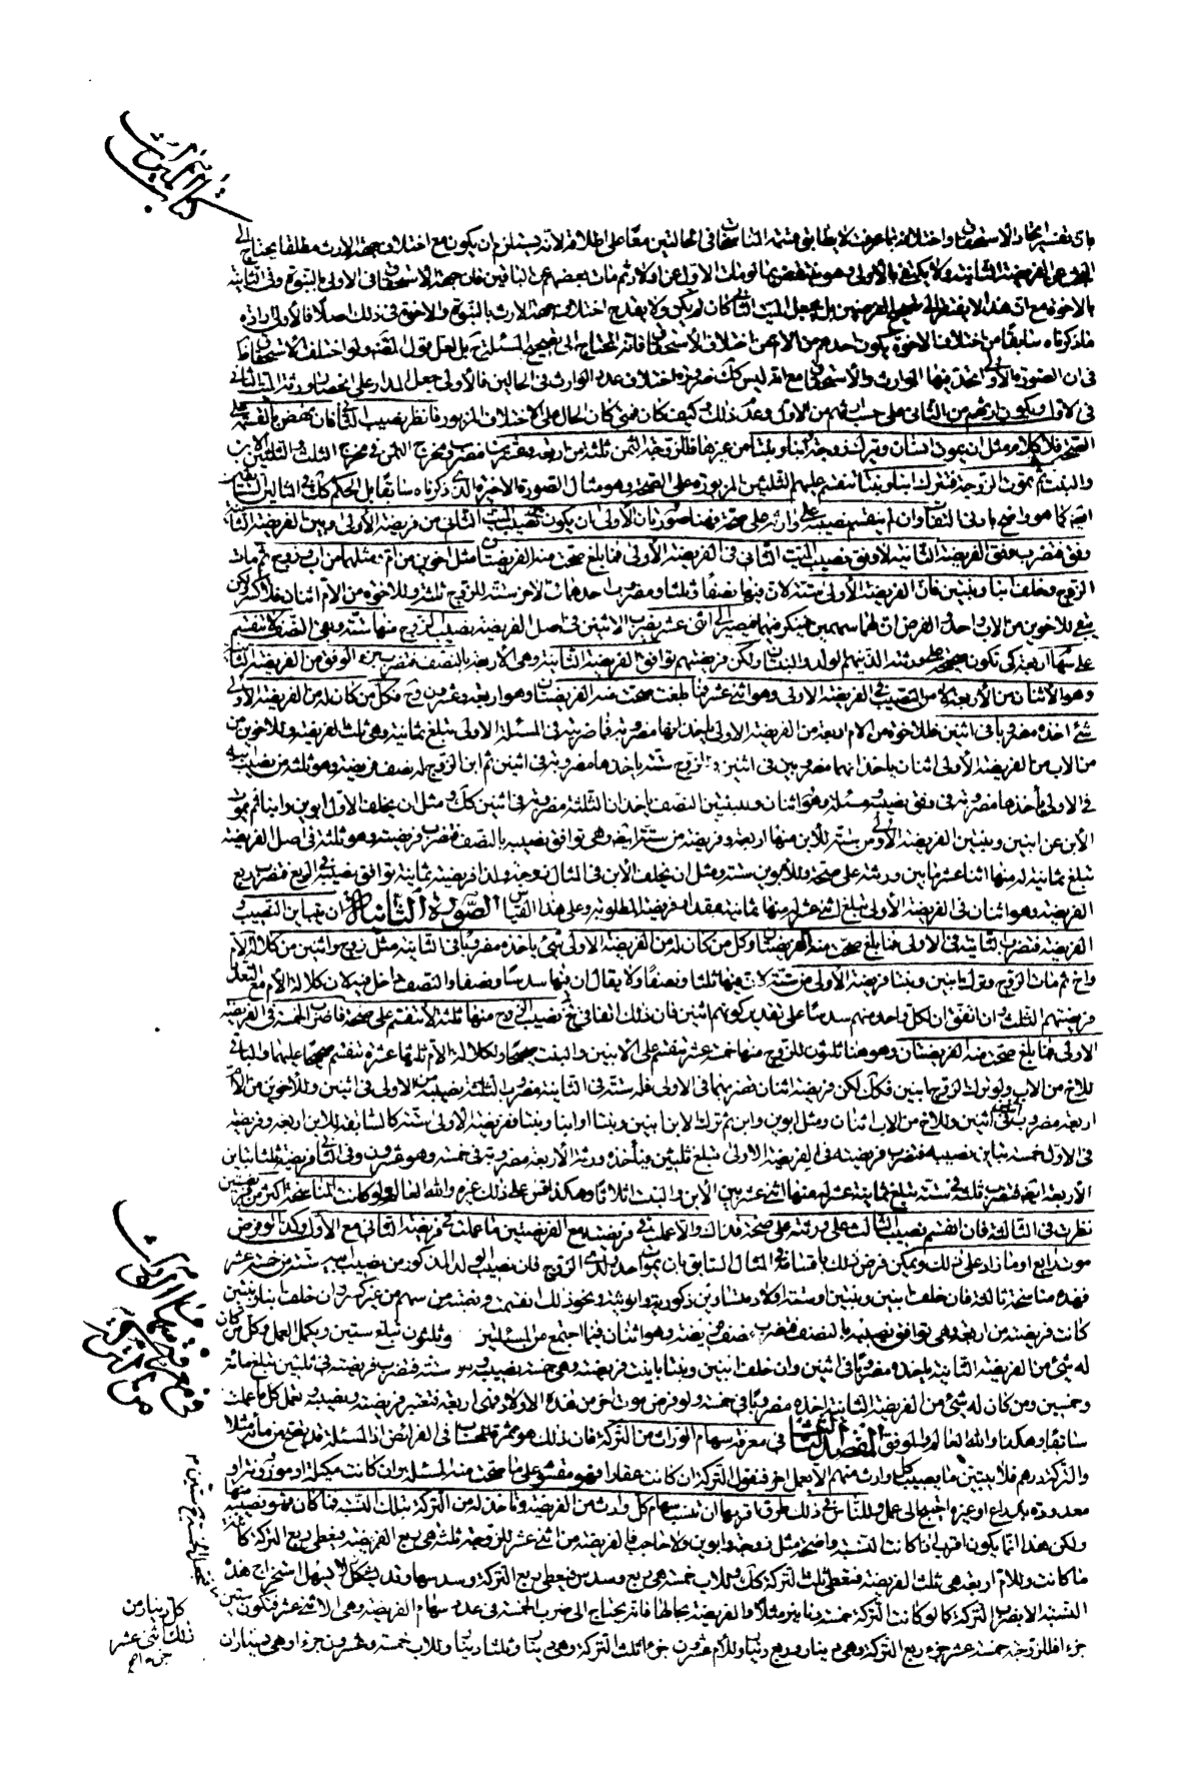 كتاب الميراث
بان تفسير اتحاد الاستحقاق واختلافه بما عرفت لا يطابق قسمة المناسخات في الحالتين معا على اطلاقه لانه يستلزم ان يكون مع اختلاف جهة الارث مطلقا يحتاج الى
عن الفريضة الثانية ولا يكتفى بالاولى وهو منتقض بما لو مات الاول عن اولاد ثم مات بعضهم عن الباقين فان جهة الاستحقاق في الاولى البنوة وفي الثانية
بالاخوة مع ان هذا لا يفتقر الى تصحيح الفريضتين بل يجعل الميت الثاني كان لم يكن ولا يقدح اختلاف جهة الارث بالبنوة والاخوة في ذلك اصلا فالأولى ارادة
ما ذكرناه سابقا من اختلاف الاخوة بكون احدهم من الام من اختلاف الاستحقاق فانه المحتاج الى تصحيح المسئلتين بل لعل قول المصنف ولو اختلف الاستحقاق
في ان الصورة الأولى اتحد فيها الوارث والاستحقاق مع انه ليس كك ضرورة اختلاف عدد الوارث في الحالين فالأولى جعل المدار على انحصار ورثة الميت الثاني
في الاول وكون ارثهم من الثاني على حسب ارثهم من الاول وعدم ذلك وكيف كان فمتى كان الحال على الاختلاف المزبور فانظر نصيب الثاني فان نهض بالقسمة على
الصحة فلا كلام مثل ان يموت انسان ويترك زوجة وابنا وبنتا من غيرها فللزوجة الثمن ثلثة من اربعة وعشرين مضروب مخرج الثمن في مخرج الثلث والثلثين للابن
والبنت ثم تموت الزوجة فتترك ابنا وبنتا فتقسم عليهم الثلثة من المزبورة على الصحة وهو مثال الصورة الاخيرة الذي ذكرناه سابقا بل الحكم كك في المثالين السابقين
ايضا كما هو واضح بادنى التفات وان لم ينقسم نصيبه على وارثه على صحة فهنا صورتان الأولى ان يكون بين نصيب الميت الثاني من فريضة الأولى وبين الفريضة الثانية
وفق فتضرب وفق الفريضة الثانية لا وفق نصيب الميت الثاني في الفريضة الأولى فما بلغ صحت منه الفريضتان مثل اخوين من ام ومثلهما من اب وزوج ثم مات
الزوج وخلف ابنا وبنتين فان الفريضة الأولى ستة لان فيها نصفا وثلثا ومضروب احدهما في الاخر ستة للزوج ثلثة وللاخوة من الام اثنان فلا كسر ولكن
يبقى للاخوين من الاب واحد والفرض ان لهما سهمين فينكسر فيهما فتصير الى اثنى عشر بضرب الاثنين في اصل الفريضة نصيب الزوج منها ستة وهي النصف لا تنقسم
على سهام اربعة كي تكون صحيحة على ورثته الذين هم الولد والبنتان ولكن فريضتهم توافق الفريضة الثانية وهي الاربعة بالنصف فتضرب جزء الوفق من الفريضة الثانية
وهو الاثنان من الأربعة لا من النصيب في الفريضة الاولى وهو اثنى عشر فما بلغت صحت منه الفريضتان وهو اربعة وعشرون وح فكل من كان له من الفريضة الأولى
شئ اخذه مضروبا في اثنين فللاخوة من الام اربعة من الفريضة الاولى ياخذانها مضروبة فيما ضربته في المسئلة الاولى تبلغ ثمانية وهي ثلث الفريضة وللاخوين من
من الاب من الفريضة الأولى اثنان ياخذانهما مضروبين في اثنين وللزوج ستة ياخذها مضروبة في اثنين ثم ابن الزوج له نصف فريضة وهو ثلثة من نصيب ابيه
في الاولى يأخذها مضروبة في وفق نصيب مسئلته وهو اثنان وللبنتين النصف ياخذان الثلثة مضروبة في اثنين كك ومثل ان يخلف الاول ابوين وابنا ثم يموت
الأبن عن ابنين وبنتين الفريضة الأولى من ستة للأبن منها اربعة وفريضته من ستة ايضا وهي توافق نصيبه بالنصف فتضرب وفق فريضته وهو ثلثة في اصل الفريضة
تبلغ ثمانية له منها اثنا عشر تقسم بين ورثته على صحة وللأبوين ستة ومثل ان يخلف الأبن في المثال زوجة وابنا فريضته ثمانية توافق نصيبه في الربع فتضرب ربع
الفريضة وهو اثنان في الفريضة الأولى تبلغ اثنى عشر له منها ثمانية بمقدار فريضته المطلوبة وعلى هذا القياس الصورة الثانية ان يتباين النصيب و
الفريضة فتضرب الثانية في الاولى فما بلغ صحت منه الفريضتان وكل من كان له من الفريضة الاولى شئ ياخذه مضروبا في الثانية مثل زوج واثنين من كلالة الام
واخ ثم مات الزوج وترك ابنين وبنتا فريضة الأولى من ستة لان فيها ثلثا ونصفا ولا يقال ان فيها سدسا ونصفا والنصف داخل فيه لان كلالة الأم مع التعدد
فريضتهم الثلث وان اتفق ان لكل واحد منهم سدسا على تقدير كونهم اثنين فان ذلك اتفاقي ثم نصيب الزوج منها ثلثة لا تنقسم على خمسة فاضرب الخمسة في الفريضة
الاولى فما بلغ صحت منه الفريضتان وهو هنا ثلثون للزوج منها خمسة عشر تنقسم على الابنين والبنت صحيحا ولكلالة الأم ثلثها عشرة تنقسم صحيحا عليهما والباقي
للاخ من الاب ولو ترك الزوج ابنين فكك لكن فريضته اثنان تضربهما في الاولى فله ستة في الثانية مضروب الثلثة نصيبه من الاولى في اثنين وللأخوين من الأم
اربعة مضروب اثنين في اثنين وللاخ من الاب اثنان ومثل ابوين وابن ثم ترك الابن ابنين وبنتا او ابنا وبنتا ففريضة الاولى ستة كالسابقة للابن اربعة وفريضته
في الاول خمسة تباين نصيبه فتضرب فريضته في الفريضة الاولى تبلغ ثلثين فيأخذ ورثته الأربعة مضروبة في خمسة وهو عشرون وفي الثاني فريضته ثلثة تباين
الأربعة ايضا فتضرب ثلثة في ستة تبلغ ثمانية عشر له منها اثنى عشر بين الأبن والبنت اثلاثا وهكذا فقس على ذلك غيره والله العالم ولو كانت المناسخة اكثر من فريضتين
نظرت في الثالثة فان انقسم نصيب الثالث على ورثته على صحة فذاك والا عملت في فريضته مع الفريضتين ما عملت في فريضة الثاني مع الأول وكذا لو فرض
موت رابع او ما زاد على ذلك ويمكن فرض ذلك باقسامه في المثال السابق بان يموت احد ولدي الزوج فان نصيب الولد المذكور من نصيب ابيه ستة من خمسة عشر
فهذه مناسخة ثالثة فان خلف ابنين وبنتين او ستة اولاد متساوين ذكورية وانوثية ونحو ذلك انقسمت ونصيبه من سهم من غير كسر وان خلف ابنا وبنتين
كانت فريضته من اربعة وهي توافق نصيبه بالنصف فتضرب نصف فريضته وهو اثنان فيما اجتمع من المسئلتين وثلثون تبلغ ستين ويكمل العمل وكل من كان
له شئ من الفريضة الثانية ياخذه مضروبا في اثنين وان خلف ابنين وبنتا باينت فريضته وهي خمسة نصيبه وهو ستة فتضرب فريضته في ثلثين تبلغ مائة
وخمسين ومن كان له شئ من الفريضة الثانية اخذه مضروبا في خمسة ولو فرض موت اخر من هذه الاولاد وهي اربعة فتعتبر فريضته ونصيبه فتعمل كما عملت
سابقا وهكذا والله العالم والموفق المقصد الثالث في معرفة سهام الوراث من التركة فان ذلك هو ثمرة الحساب في الفرائض اذ المسئلة قد تصح من مائة مثلا
والتركة درهم فلا يتبين ما يصيب كل وارث منهم الا بعمل اخر فنقول التركة ان كانت عقارا فهو مقسوم على ما صحت منه المسئلة وان كانت مكيلة او موزونة او
معدودة بذراع او غيره احتيج الى عمل وللناس في ذلك طرق اقربها ان تنسب سهام كل وارث من الفريضة وتأخذ له من التركة بتلك النسبة فما كان فهو نصيبه منها
ولكن هذا انما يكون اقرب اذا كانت النسبة واضحة مثل زوجة وابوين ولا حاجب فالفريضة من اثنى عشر للزوجة ثلثة هي ربع الفريضة فتعطى ربع التركة كائنة
ما كانت وللام اربعة هي ثلث الفريضة فتعطى ثلث التركة كك وللاب خمسة هي ربع وسدس فيعطى ربع التركة وسدسها وقد يشكل اذ لا يسهل استخراج هذه
النسبة الا بضرب التركة كما لو كانت التركة خمسة دنانير مثلا والفريضة بحالها فانه يحتاج الى ضرب الخمسة في عدد سهام الفريضة وهي الاثنى عشر فتكون ستين
جزءا فللزوجة خمسة عشر جزء ربع التركة وهي دينار وربع دينار وللأم عشرون جزء ثلث التركة وهي دينار وثلثا دينار وللاب خمسة وعشرون جزء او هي ديناران
في معرفة سهام الوراث
من التركة
تجعل الخمسة ستين م
كل دينار من
ذلك اثنى عشر
جزء اصح